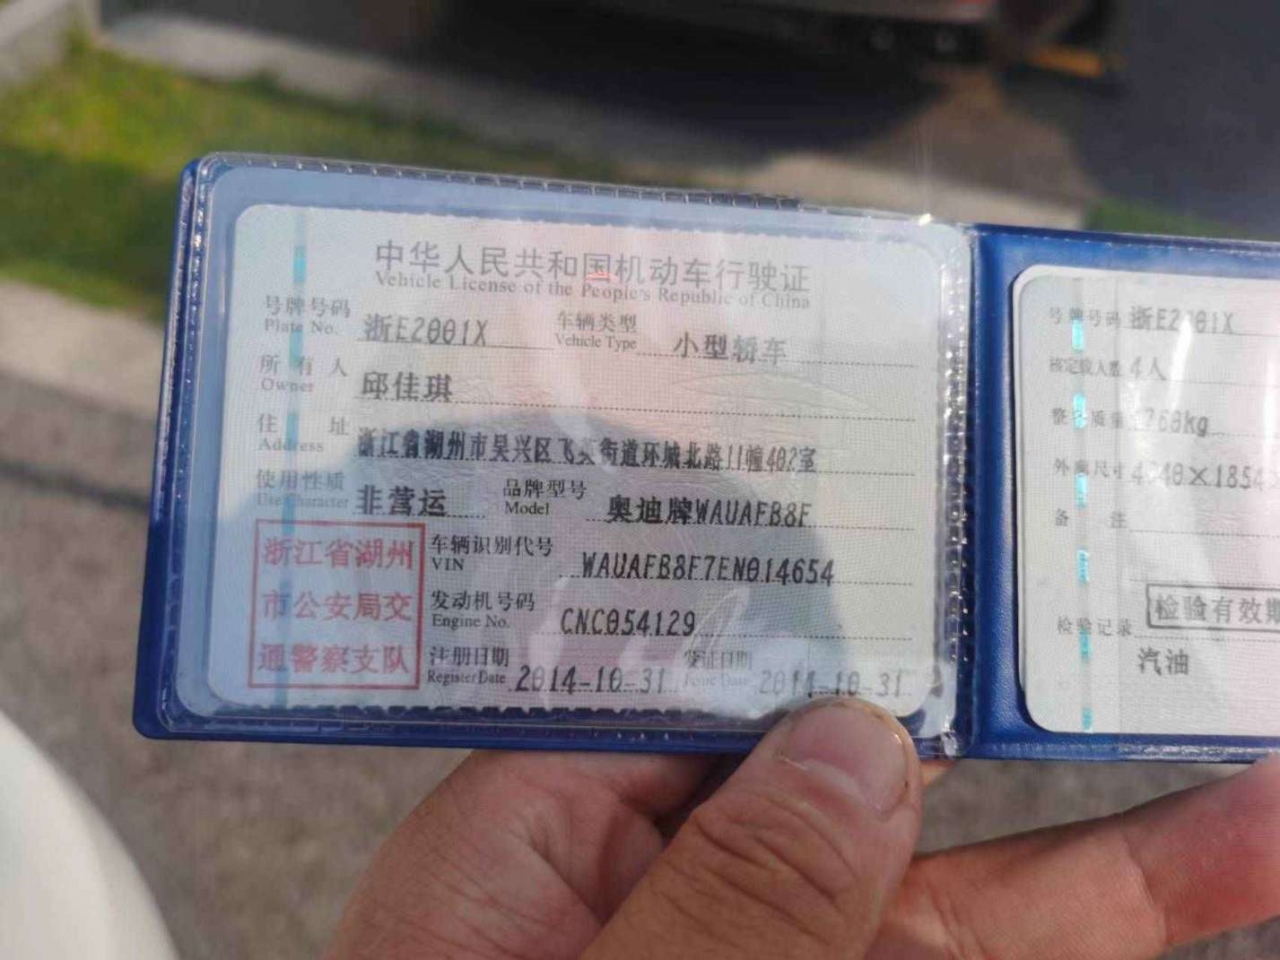 中华人民共和国机动车行驶证
Vehicle License of the People's Republic of China
号牌号码 浙E2001X 车辆类型 小型轿车
Plate No. Vehicle Type
所有人 邱佳琪
Owner
住址 浙江省湖州市吴兴区飞英街道环城北路11幢402室
Address
使用性质 非营运 品牌型号 奥迪牌WAUAFB8F
Use Character Model
浙江省湖州
市公安局交
通警察支队
车辆识别代号 WAUAFB8F7EN014654
VIN
发动机号码 CNC054129
Engine No.
注册日期 2014-10-31 发证日期 2014-10-31
Register Date Issue Date
号牌号码 浙E2001X
核定载人数 4人
整备质量 1760kg
外廓尺寸 ×1854
备注
检验有效期
检验记录
汽油